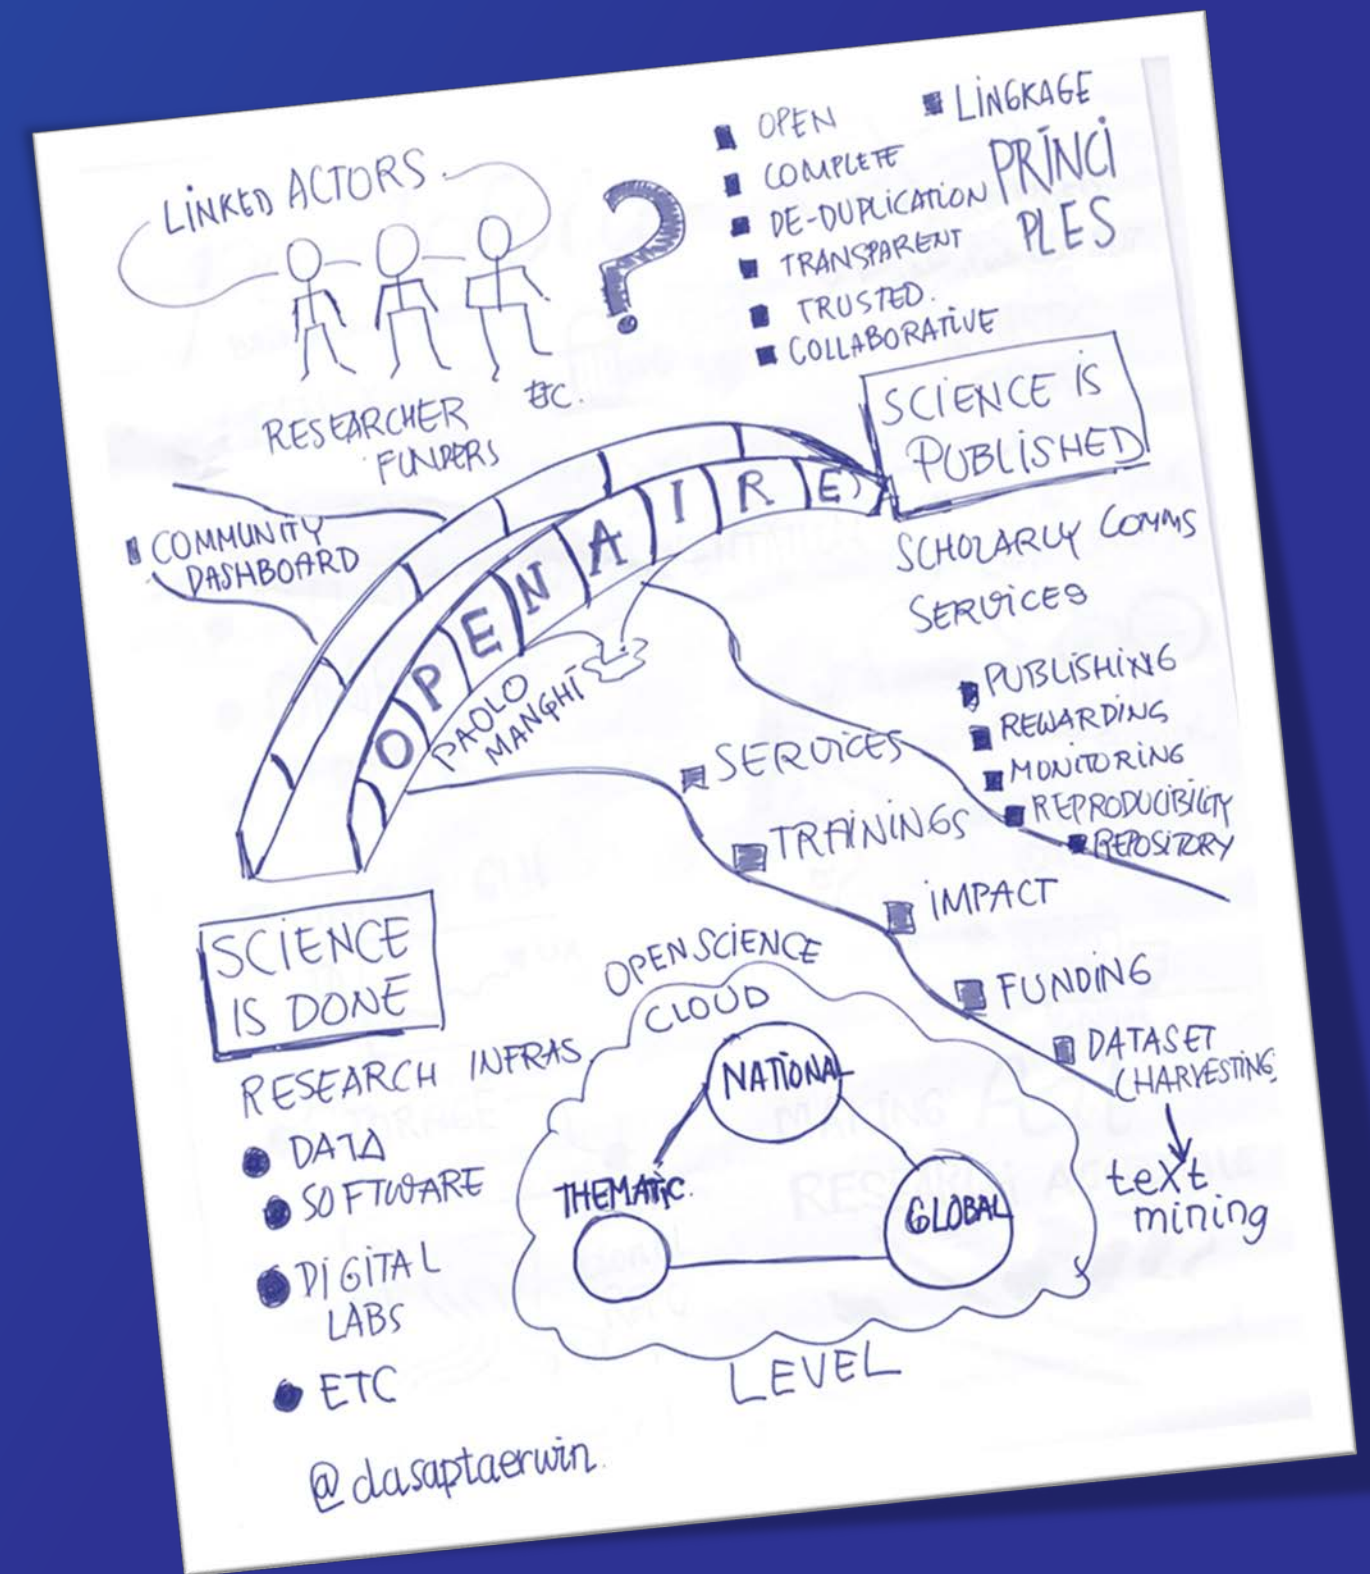 LINKED ACTORS
RESEARCHER
FUNDERS
ETC.
?
OPEN
COMPLETE
DE-DUPLICATION
TRANSPARENT
TRUSTED.
COLLABORATIVE
LINGKAGE
PRINCI
PLES
SCIENCE IS
PUBLISHED
SCHOLARLY COMMS
SERVICES
PUBLISHING
REWARDING
MONITORING
REPRODUCIBILITY
REPOSITORY
COMMUNITY
DASHBOARD
OPENAIRE
PAOLO
MANGHI
SERVICES
TRAININGS
IMPACT
FUNDING
DATASET
(HARVESTING)
text
mining
SCIENCE
IS DONE
RESEARCH INFRAS.
DATA
SOFTWARE
DIGITAL
LABS
ETC
OPEN SCIENCE
CLOUD
NATIONAL
THEMATIC.
GLOBAL
LEVEL
@dasaptaerwin.